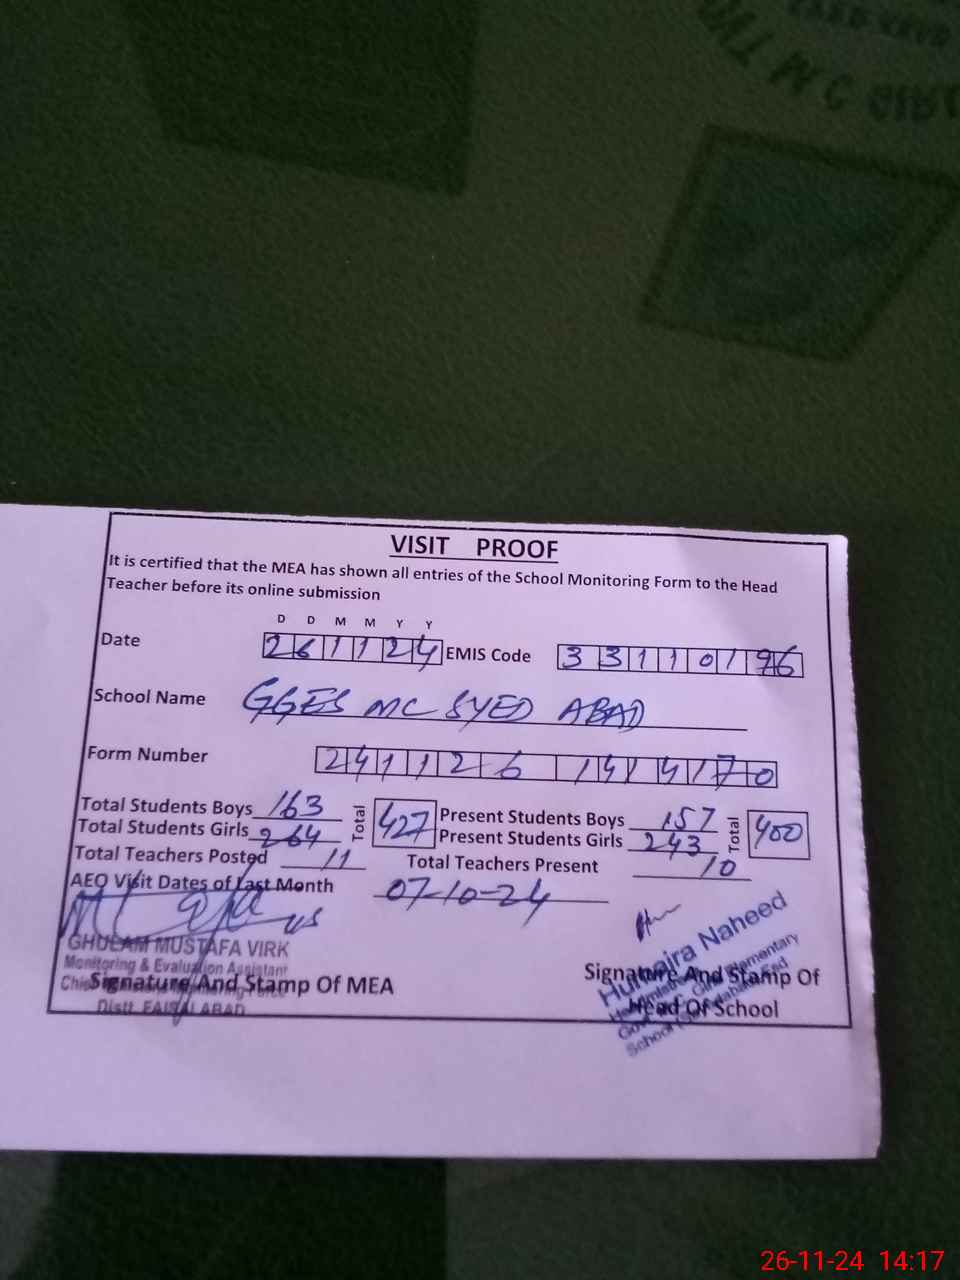 VISIT PROOF
It is certified that the MEA has shown all entries of the School Monitoring Form to the Head
Teacher before its online submission
D D M M Y Y
Date 261124 EMIS Code 33110196
School Name GGES MC SYED ABAD
Form Number 241126 141470
Total Students Boys 163 Total 427 Present Students Boys 157 Total 400
Total Students Girls 264 Present Students Girls 243
Total Teachers Posted 11 Total Teachers Present 10
AEO Visit Dates of Last Month 07-10-24
GHULAM MUSTAFA VIRK
Monitoring & Evaluation Assistant
Signature And Stamp Of MEA
Distt. FAISALABAD
Humaira Naheed
Signature And Stamp Of
Head Of School
26-11-24 14:17